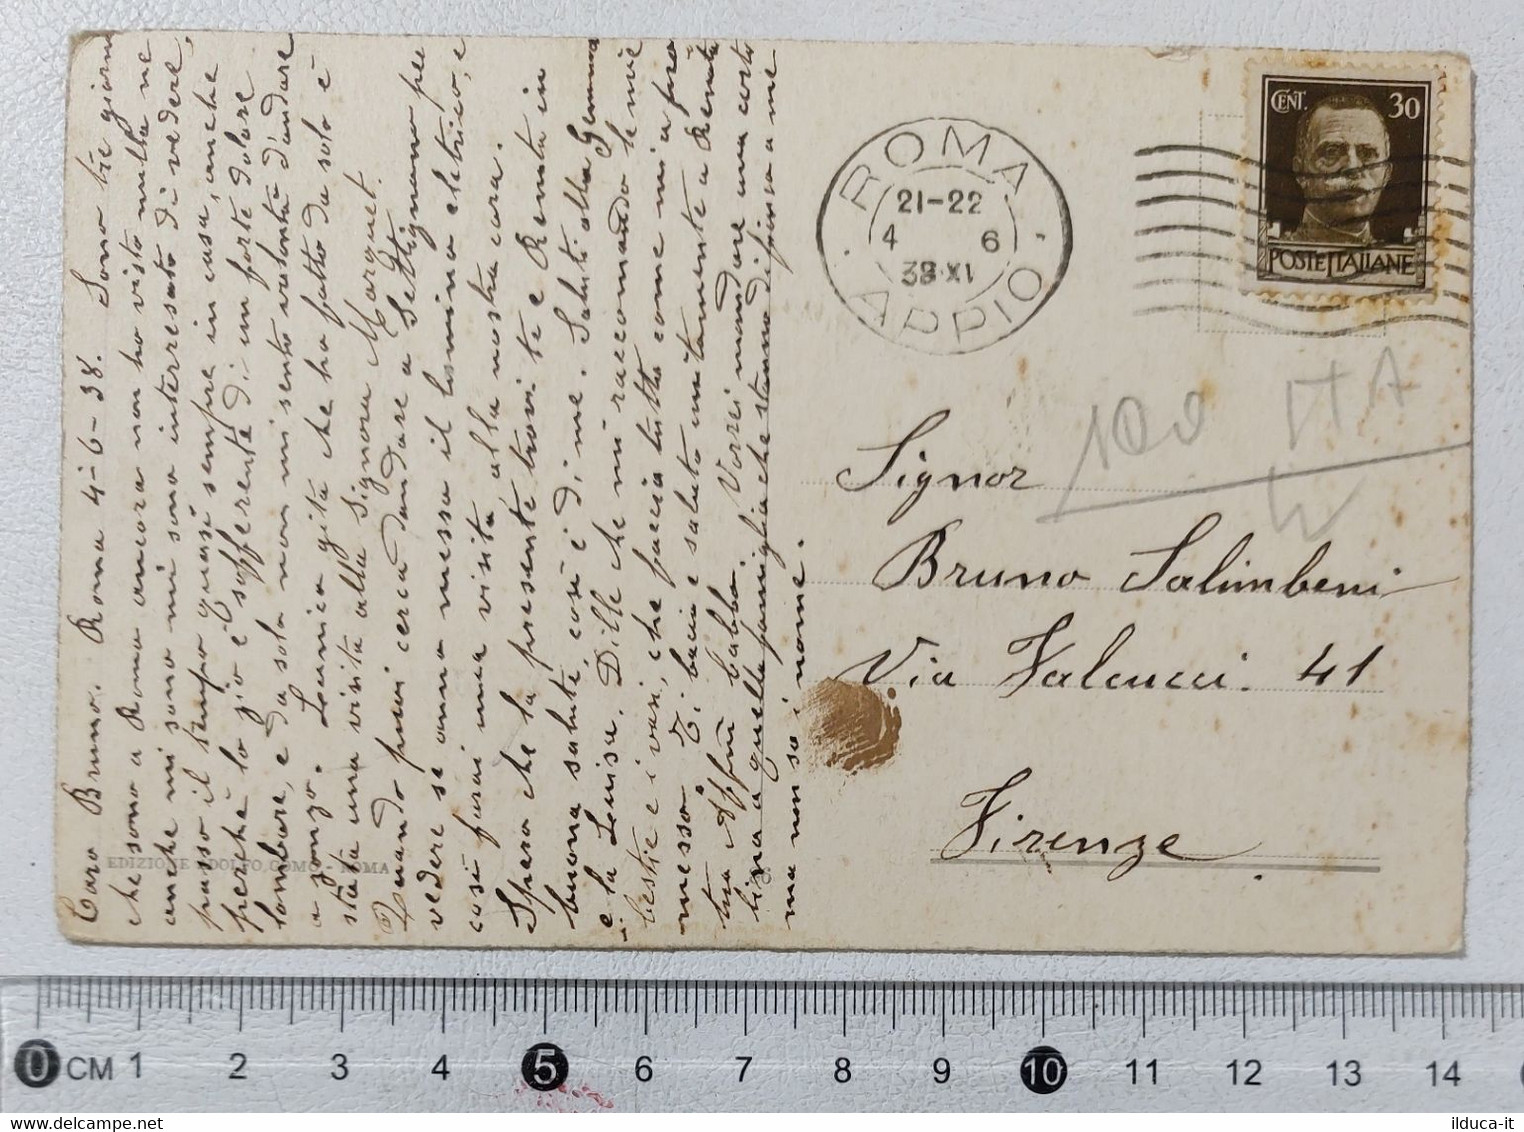 Caro Bruno. Roma 4-6-38. Sono tre giorni
che sono a Roma ancora non ho visto nulla ne
anche mi sono mi sono interressato di vedere
passo il tempo quasi sempre in casa, anche
perchè lo zio è sofferente di un forte dolore
lombare, e da solo non mi sento volontà d'andare
a zonzo. L'unica gita che ho fatto da solo è
stata una visita alla Signora Marquet.
Quando puoi cerca d'andare a Settignano per
vedere se anno messa il lumina eletrico, e
così farai una visita alla nostra cara.
Spero che la presente trovi te e Renata in
buona salute, così è di me. Saluti alla Gemma
e la Luisa. Dille che mi raccomando le mie
bestie e i vasi, che faccia tutto come mi a pro
messo. Ti bacio e saluto unitamente a Renata
tuo Aff.mo babbo. Vorrei mandare una carto
lina a quella famiglia che stanno di fianco a me
ma non so i nome.
EDIZIONE ADOLFO COMO - ROMA
ROMA
21-22
4 6
38 XI
APPIO
CENT. 30
POSTE ITALIANE
100 ITA
Signor
Bruno Salimbeni
Via Falcucci. 41
Firenze
0 CM 1 2 3 4 5 6 7 8 9 10 11 12 13 14
ilduca-it